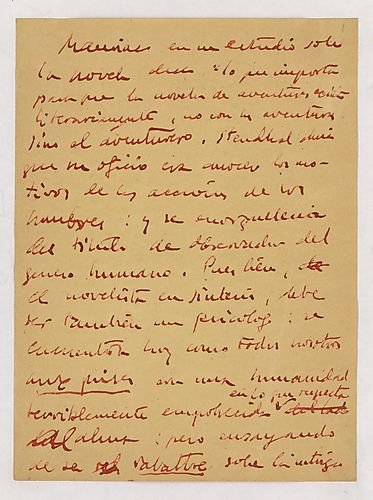 en un estudio sobre
la novela dice "lo que importa
para que la novela de aventuras exista
literariamente, no son las aventuras
sino el aventurero. Stendhal decía
que su oficio era conocer los mo-
tivos de las acciones de los
hombres: y se enorgullecía
del título de observador del
género humano. Pues bien,
el novelista en síntesis, debe
ser también un psicólogo: se
encuentra hoy como todos nosotros
con una humanidad
en lo que respecta
terriblemente empobrecida
al alma: pero ensayando
de se sobre la intriga